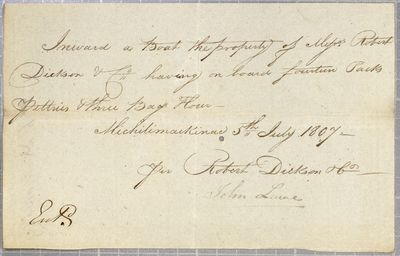 Inward a Boat the property of Messrs Robert
Dickson & Co. having on board fourteen Packs
Peltries & three Bags Flour —
Michilimackinac 5th July 1807 —
Per Robert Dickson & Co —
John